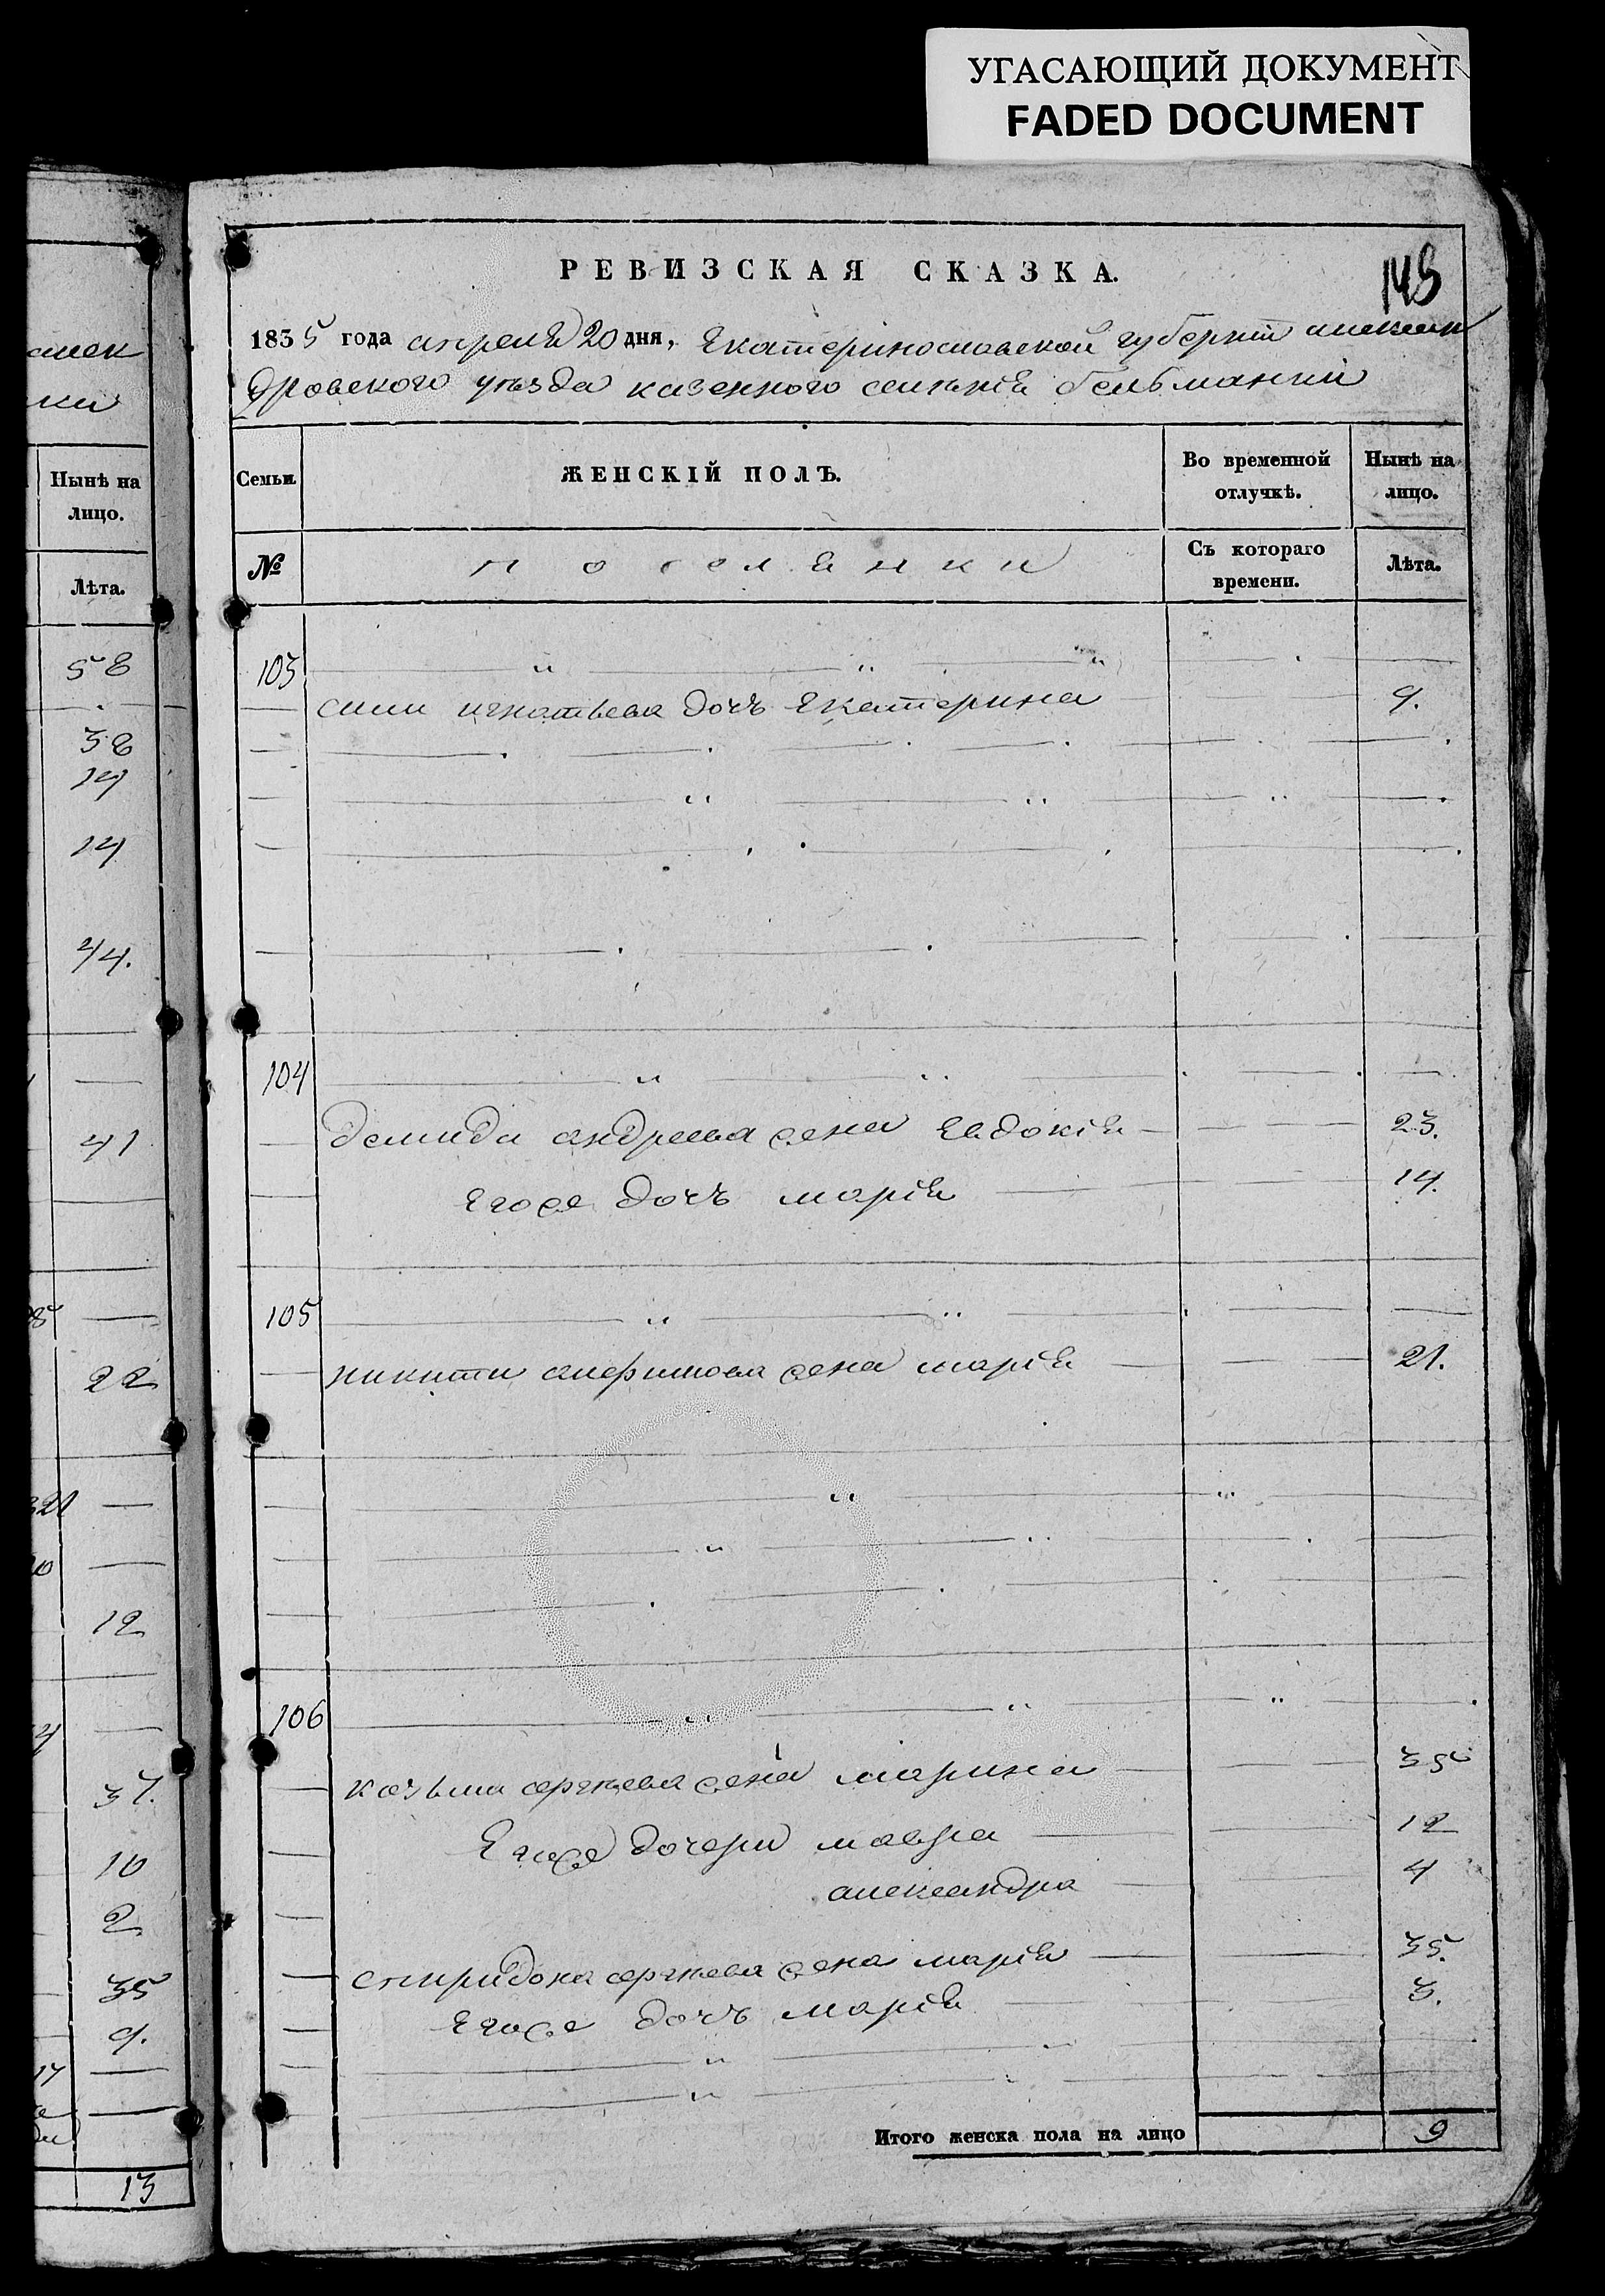 УГАСАЮЩИЙ ДОКУМЕНТ
FADED DOCUMENT
РЕВИЗСКАЯ СКАЗКА.
145
1835 года апреля 20 дня, Екатеринославской губернiи алексан
дровского уѣзда казенного селѣнiя бельманки
Семьи.
ЖЕНСКIЙ ПОЛЪ.
Во временной отлучкѣ.
Нынѣ на лицо.
№
поселянки
Съ котораго времени.
Лѣта.
103
силы игнатьева дочь Екатерина 9.
104
демида андреева жена Евдокiя 23.
Егоже дочь марiя 14.
105
никиты алферимова жена марiя 21.
106
козьмы сергѣева жена марина 35
Егоже дочери мавра 12
александра 4
спиридона сергѣева жена марiя 35.
Егоже дочь марiя 3.
Итого женска пола на лицо 9
алек
ки
Нынѣ на
лицо.
Лѣта.
58
38
14
14
44.
41
22
12
37.
10
2
35
9.
13